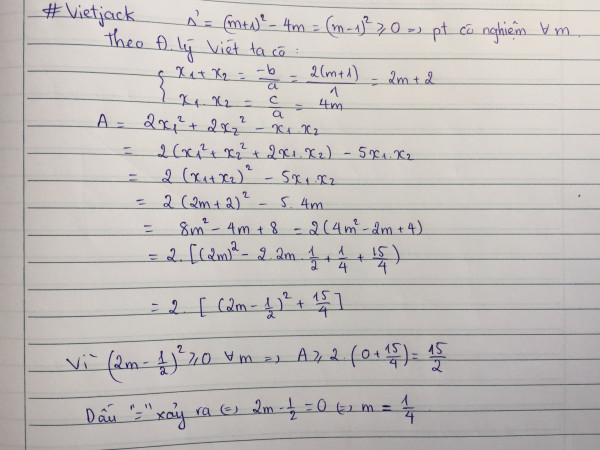 #Vietjack Δ' = (m+1)² - 4m = (m-1)² ≥ 0 => pt có nghiệm ∀m.
Theo Đ.lý Viét ta có:
{ x₁ + x₂ = -b/a = 2(m+1)/1 = 2m + 2
x₁ . x₂ = c/a = 4m
A = 2x₁² + 2x₂² - x₁.x₂
= 2(x₁² + x₂² + 2x₁.x₂) - 5x₁.x₂
= 2(x₁+x₂)² - 5x₁.x₂
= 2(2m+2)² - 5.4m
= 8m² - 4m + 8 = 2(4m² - 2m + 4)
= 2.[(2m)² - 2.2m.1/2 + 1/4 + 15/4)
= 2.[(2m - 1/2)² + 15/4]
Vì (2m - 1/2)² ≥ 0 ∀m => A ≥ 2.(0 + 15/4) = 15/2
Dấu "=" xảy ra (=) 2m - 1/2 = 0 (=) m = 1/4